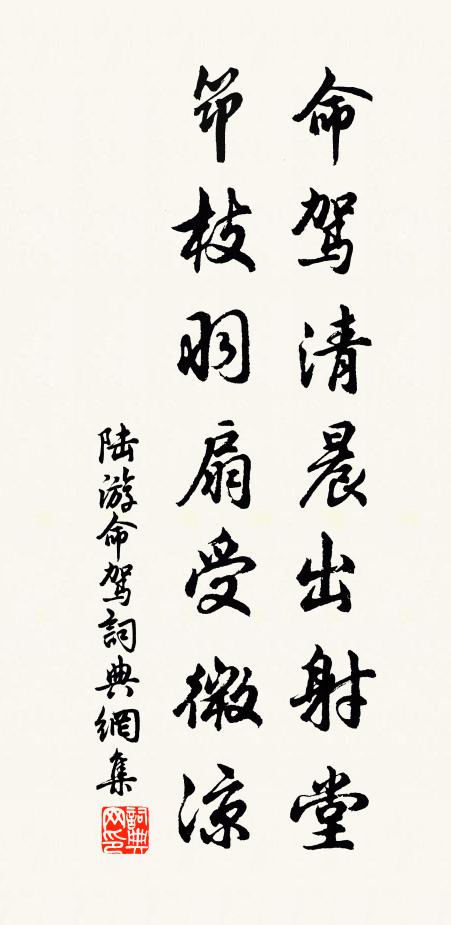 命駕清晨出射堂
筇枝羽扇受微涼
陸游命駕詞典網集
詞典网印